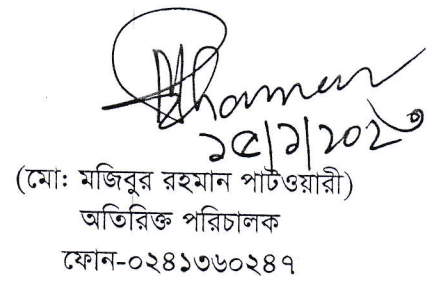 ১৫/১/২০২৩
(মোঃ মজিবুর রহমান পাটওয়ারী)
অতিরিক্ত পরিচালক
ফোন-০২৪১৩৬০২৪৭